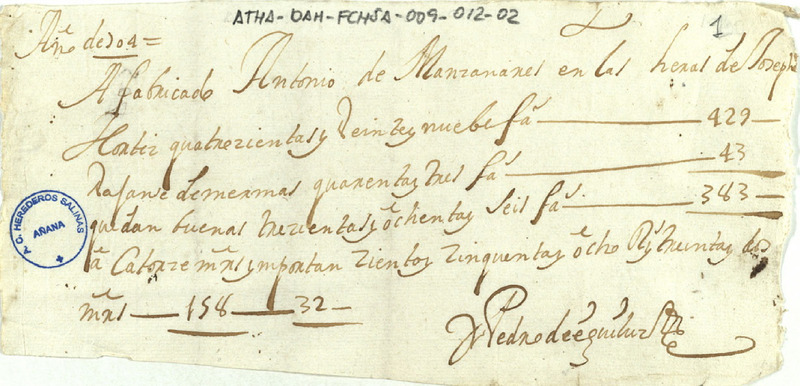 ATHA-DAH-FCHSA-009-012-02
1
Año de 704=
A fabricado Antonio de Manzanares en las heras de Joseph
Hortiz quatrezientas y Veinte y nuebe fas — 429 —
Vajanse de mermas quarenta y tres fas — 43
quedan buenas trezientas y ochenta y seis fas — 383 —
a Catorze mrs y importan zientos zinquenta y ocho Rs y treinta y dos
mrs — 158 — 32 —
Pedro de eguiluz
A. C. HEREDEROS SALINAS
AÑANA